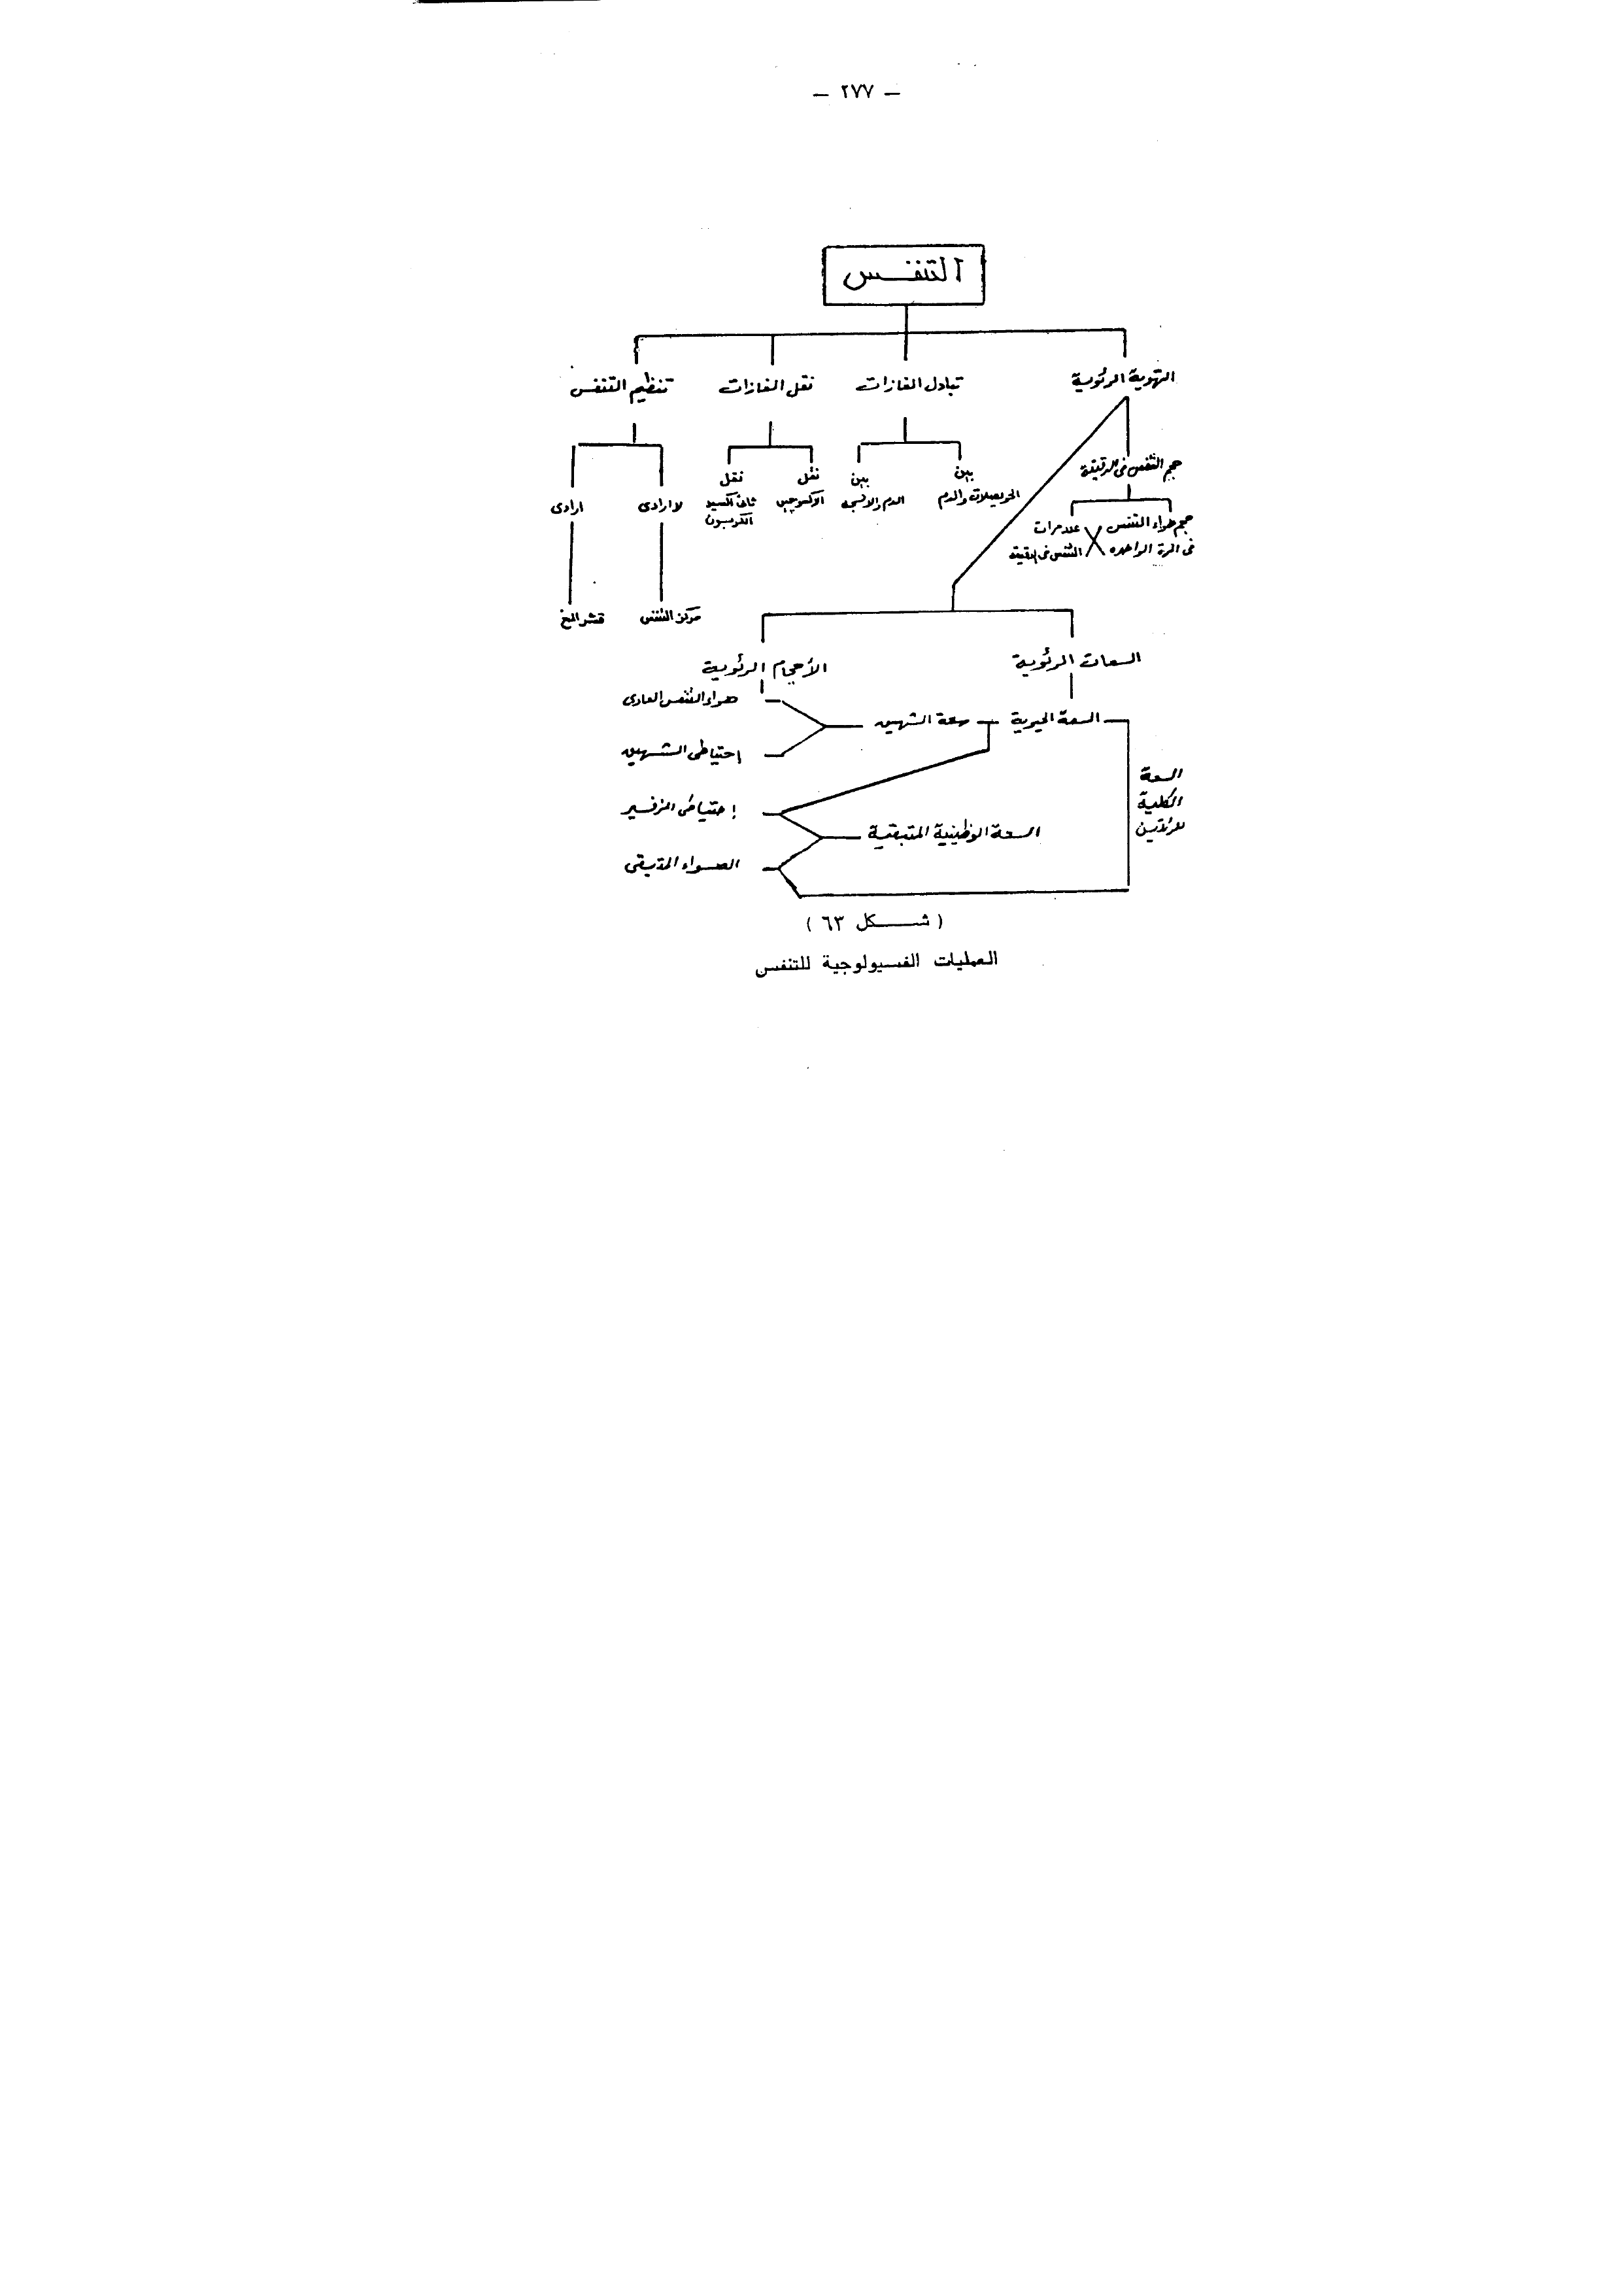 — ٢٧٧ —
التنفـــس
التهوية الرئوية
تبادل الغازات
نقل الغازات
تنظيم التنفس
حجم التنفس فى الدقيقة
حجم هواء التنفس
فى المرة الواحده
عدد مرات
التنفس فى الدقيقه
بين
الحويصلات والدم
بين
الدم والانسجه
نقل
الاكسوجين
نقل
ثانى اكسيد
الكربون
لا ارادى
ارادى
مركز التنفس
قشر المخ
السعات الرئوية
الأحجام الرئوية
السعة الحيوية
سعة الشهيق
هواء التنفس العادى
إحتياطى الشهيق
السعة
الكلية
للرئتين
إحتياطى الزفير
السعة الوظيفية المتبقية
الهواء المتبقى
( شـــــكل ٦٣ )
العمليات الفسيولوجية للتنفس